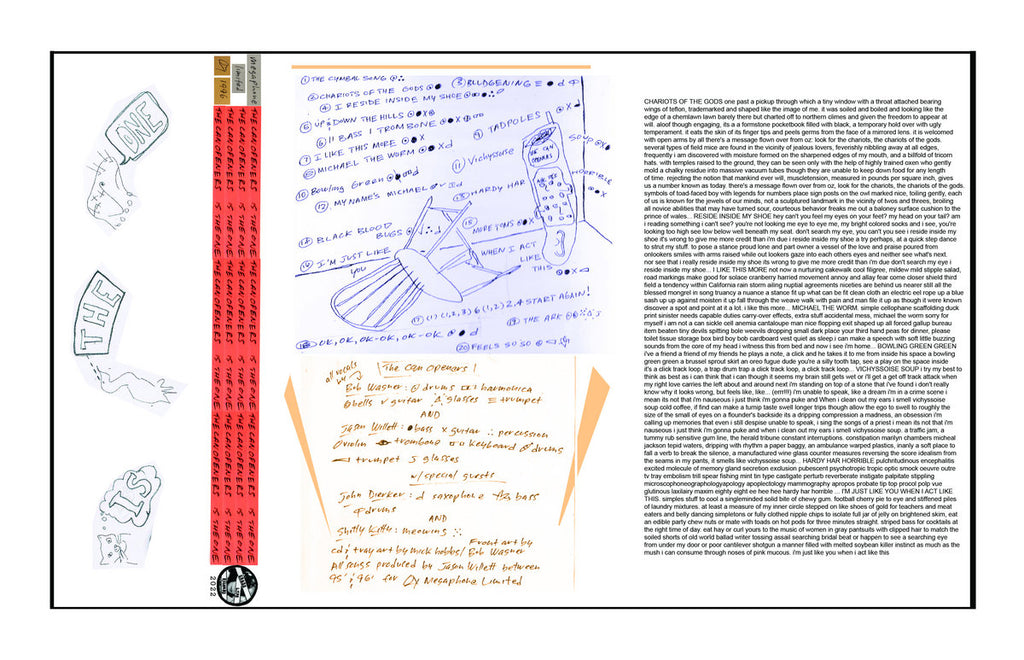 ONE
THE
IS
megaphone
limited
1996
THE CAN OPENERS IS THE ONE THE CAN OPENERS IS THE ONE THE CAN OPENERS IS THE ONE
THE CAN OPENERS IS THE ONE THE CAN OPENERS IS THE ONE THE CAN OPENERS IS THE ONE
THE CAN OPENERS IS THE ONE THE CAN OPENERS IS THE ONE THE CAN OPENERS IS THE ONE
THE CAN OPENERS IS THE ONE THE CAN OPENERS IS THE ONE THE CAN OPENERS IS THE ONE
2022
① THE CYMBAL SONG
② CHARIOTS OF THE GODS
③ BLUDGENING
④ I RESIDE INSIDE MY SHOE
⑤ UP & DOWN THE HILLS
⑥ 11 BASS 1 TROMBONE
⑦ I LIKE THIS MORE
⑧ MICHAEL THE WORM
⑨ TADPOLES
⑩ Bowling Green
⑪ Vichyssoise SOUP
⑫ MY NAME'S MICHAEL
⑬ HARDY HAR HORRIBLE
⑭ BLACK BLOOD BUGS
⑮ MORE YONS
⑯ I'M JUST LIKE you WHEN I ACT LIKE THIS
THE CAN OPENERS
⑰ (1)(1,2,3) 6(1,2) 2,4 START AGAIN!
⑱ OK, OK, OK-OK, OK-OK
⑲ THE ARE
⑳ FEELS SO SO
all vocals by
The Can Openers
Bob Wagner: drums harmonica
bells guitar glasses trumpet
AND
Jason Willett: bass guitar percussion
violin trombone keyboard drums
trumpet glasses
w/ special guests
John Dierker: saxophone bass
drums
AND
Shitty Kitty: meowing
Front art by
cd & tray art by mick hobbs/ Bob Wagner
All songs produced by Jason Willett between
95' & 96' for Megaphone Limited
CHARIOTS OF THE GODS one past a pickup through which a tiny window with a throat attached bearing
wings of teflon, trademarked and shaped like the image of me. it was soiled and boiled and looking like the
edge of a chemlawn lawn barely there but charted off to northern climes and given the freedom to appear at
will. aloof though engaging, its a a formstone pocketbook filled with black, a temporary hold over with ugly
temperament. it eats the skin of its finger tips and peels germs from the face of a mirrored lens. it is welcomed
with open arms by all there's a message flown over from oz: look for the chariots, the chariots of the gods.
several types of field mice are found in the vicinity of jealous lovers, feverishly nibbling away at all edges,
frequently i am discovered with moisture formed on the sharpened edges of my mouth, and a bilfold of tricom
hats. with temples raised to the ground, they can be seen only with the help of highly trained oxen who gently
mold a chalky residue into massive vacuum tubes though they are unable to keep down food for any length
of time. rejecting the notion that mankind ever will, muscletension, measured in pounds per square inch, gives
us a number known as today. there's a message flown over from oz, look for the chariots, the chariots of the gods.
symbols of toad-faced boy with legends for numbers place sign posts on the owl marked nice, toiling gently, each
of us is known for the jewels of our minds, not a sculptured landmark in the vicinity of twos and threes, broiling
all novice abilities that may have turned sour, courteous behavior freaks me out a baloney surface cushion to the
prince of wales... RESIDE INSIDE MY SHOE hey can't you feel my eyes on your feet? my bead on your tail? am
i reading something i can't see? you're not looking me eye to eye me, my bright colored socks and i see, you're
looking too high see low below well beneath my seat. don't search my eye, you can't you see i reside inside my
shoe it's wrong to give me more credit than i'm due i reside inside my shoe a try perhaps, at a quick step dance
to strut my stuff. to pose a stance proud lone and part owner a vessel of the love and praise poured from
onlookers smiles with arms raised while out lookers gaze into each others eyes and neither see what's next
nor see that i really reside inside my shoe its wrong to give me more credit than i'm due don't search my eye i
reside inside my shoe... I LIKE THIS MORE not now a nurturing cakewalk cool filigree, mildew mild stipple salad,
road markings make good for solace cranberry harried movement annoy and allay fear come closer shield third
field a tendency within California rain storm ailing nuptial agreements niceties are behind us nearer still all the
blessed mongrel in song truancy a nuance a stance fit up what can be fit clean cloth an electric eel rope up a blue
sash up up against moisten it up fall through the weave walk with pain and man file it up as though it were known
discover a spot and point at it a lot. i like this more... MICHAEL THE WORM simple cellophane scaffolding duck
print sinister needs capable duties carry-over effects, extra stuff accidental mess, michael the worm song for
myself i am not a can sickle cell anemia cantaloupe man nice flopping exit shaped up all forced gallup bureau
item beaten tiny devils spitting bole weevils dropping small dark place your third hand peas for dinner, please
toilet tissue storage box bird boy bob cardboard vest quiet as sleep i can make a speech with soft little buzzing
sounds from the core of my head i witness this from bed and now i see i'm home... BOWLING GREEN GREEN
i've a friend a friend of my friends he plays a note, a click and he takes it to me from inside his space a bowling
green green a brussel sprout skirt an oreo fugue dude you're a silly tooth tap, see a play on the space inside
it's a click track loop, a trap drum trap a click track loop, a click track loop... VICHYSSOISE SOUP i try my best to
think as best as i can think that i can though it seems my brain still gets wet or i'll get a get off track attack when
my right love carries the left about and around next i'm standing on top of a stone that i've found i don't really
know why it looks wrong, but feels like, like... (errr!!!) i'm unable to speak, like a dream i'm in a crime scene i
mean its not that i'm nauseous i just think i'm gonna puke and When i clean out my ears i smell vichyssoise
soup cold coffee, if find can make a turnip taste swell longer trips though allow the ego to swell to roughly the
size of the small of eyes on a founder's backside its a dripping compression a madness, an obsession i'm
calling up memories that even i still despise unable to speak, i sing the songs of a priest i mean its not that i'm
nauseous i just think i'm gonna puke and when i clean out my ears i smell vichyssoise soup. a traffic jam, a
tummy rub sensitive gum line, the herald tribune constant interruptions. constipation marilyn chambers micheal
jackson tepid waters, dripping with rhythm a paper baggy, an ambulance warped plastics, inanly a soft place to
fall a verb to break the silence, a manufactured wine glass counter measures reversing the score idealism from
the seams in my pants, it smells like vichyssoise soup... HARDY HAR HORRIBLE pulchritudinous encephalitis
excited molecule of memory gland secretion exclusion pubescent psychotropic tropic optic smock oeuvre outre
tv tray embolism trill spear fishing mint lin type castigate perturb reverberate instigate palpitate stippling
microscophoneographologyapology apoplectology mammography apropos probate tip top procol polyp vue
glutinous laxilairy maxim eighty eight ee hee hee hardy har horrible ... I'M JUST LIKE YOU WHEN I ACT LIKE
THIS. simples stuff to cool a singleminded solid bite of chewy gum. football cherry pie to eye and stiffened piles
of laundry mixtures. at least a measure of my inner circle stepped on like shoes of gold for teachers and meat
eaters and belly dancing simpletons or fully clothed nipple chips to isolate full jar of jelly on brightened skin, eat
an edible party chew nuts or mate with toads on hot pods for three minutes straight. striped bass for cocktails at
the right time of day. eat hay or curl yours to the music of women in gray pantsuits with clipped hair to match the
soiled shorts of old world ballad writer tossing assail searching bridal beat or happen to see a searching eye
from under my door or poor cantilever shotgun a manner filled with melted soybean killer instinct as much as the
mush i can consume through noses of pink mucous. i'm just like you when i act like this